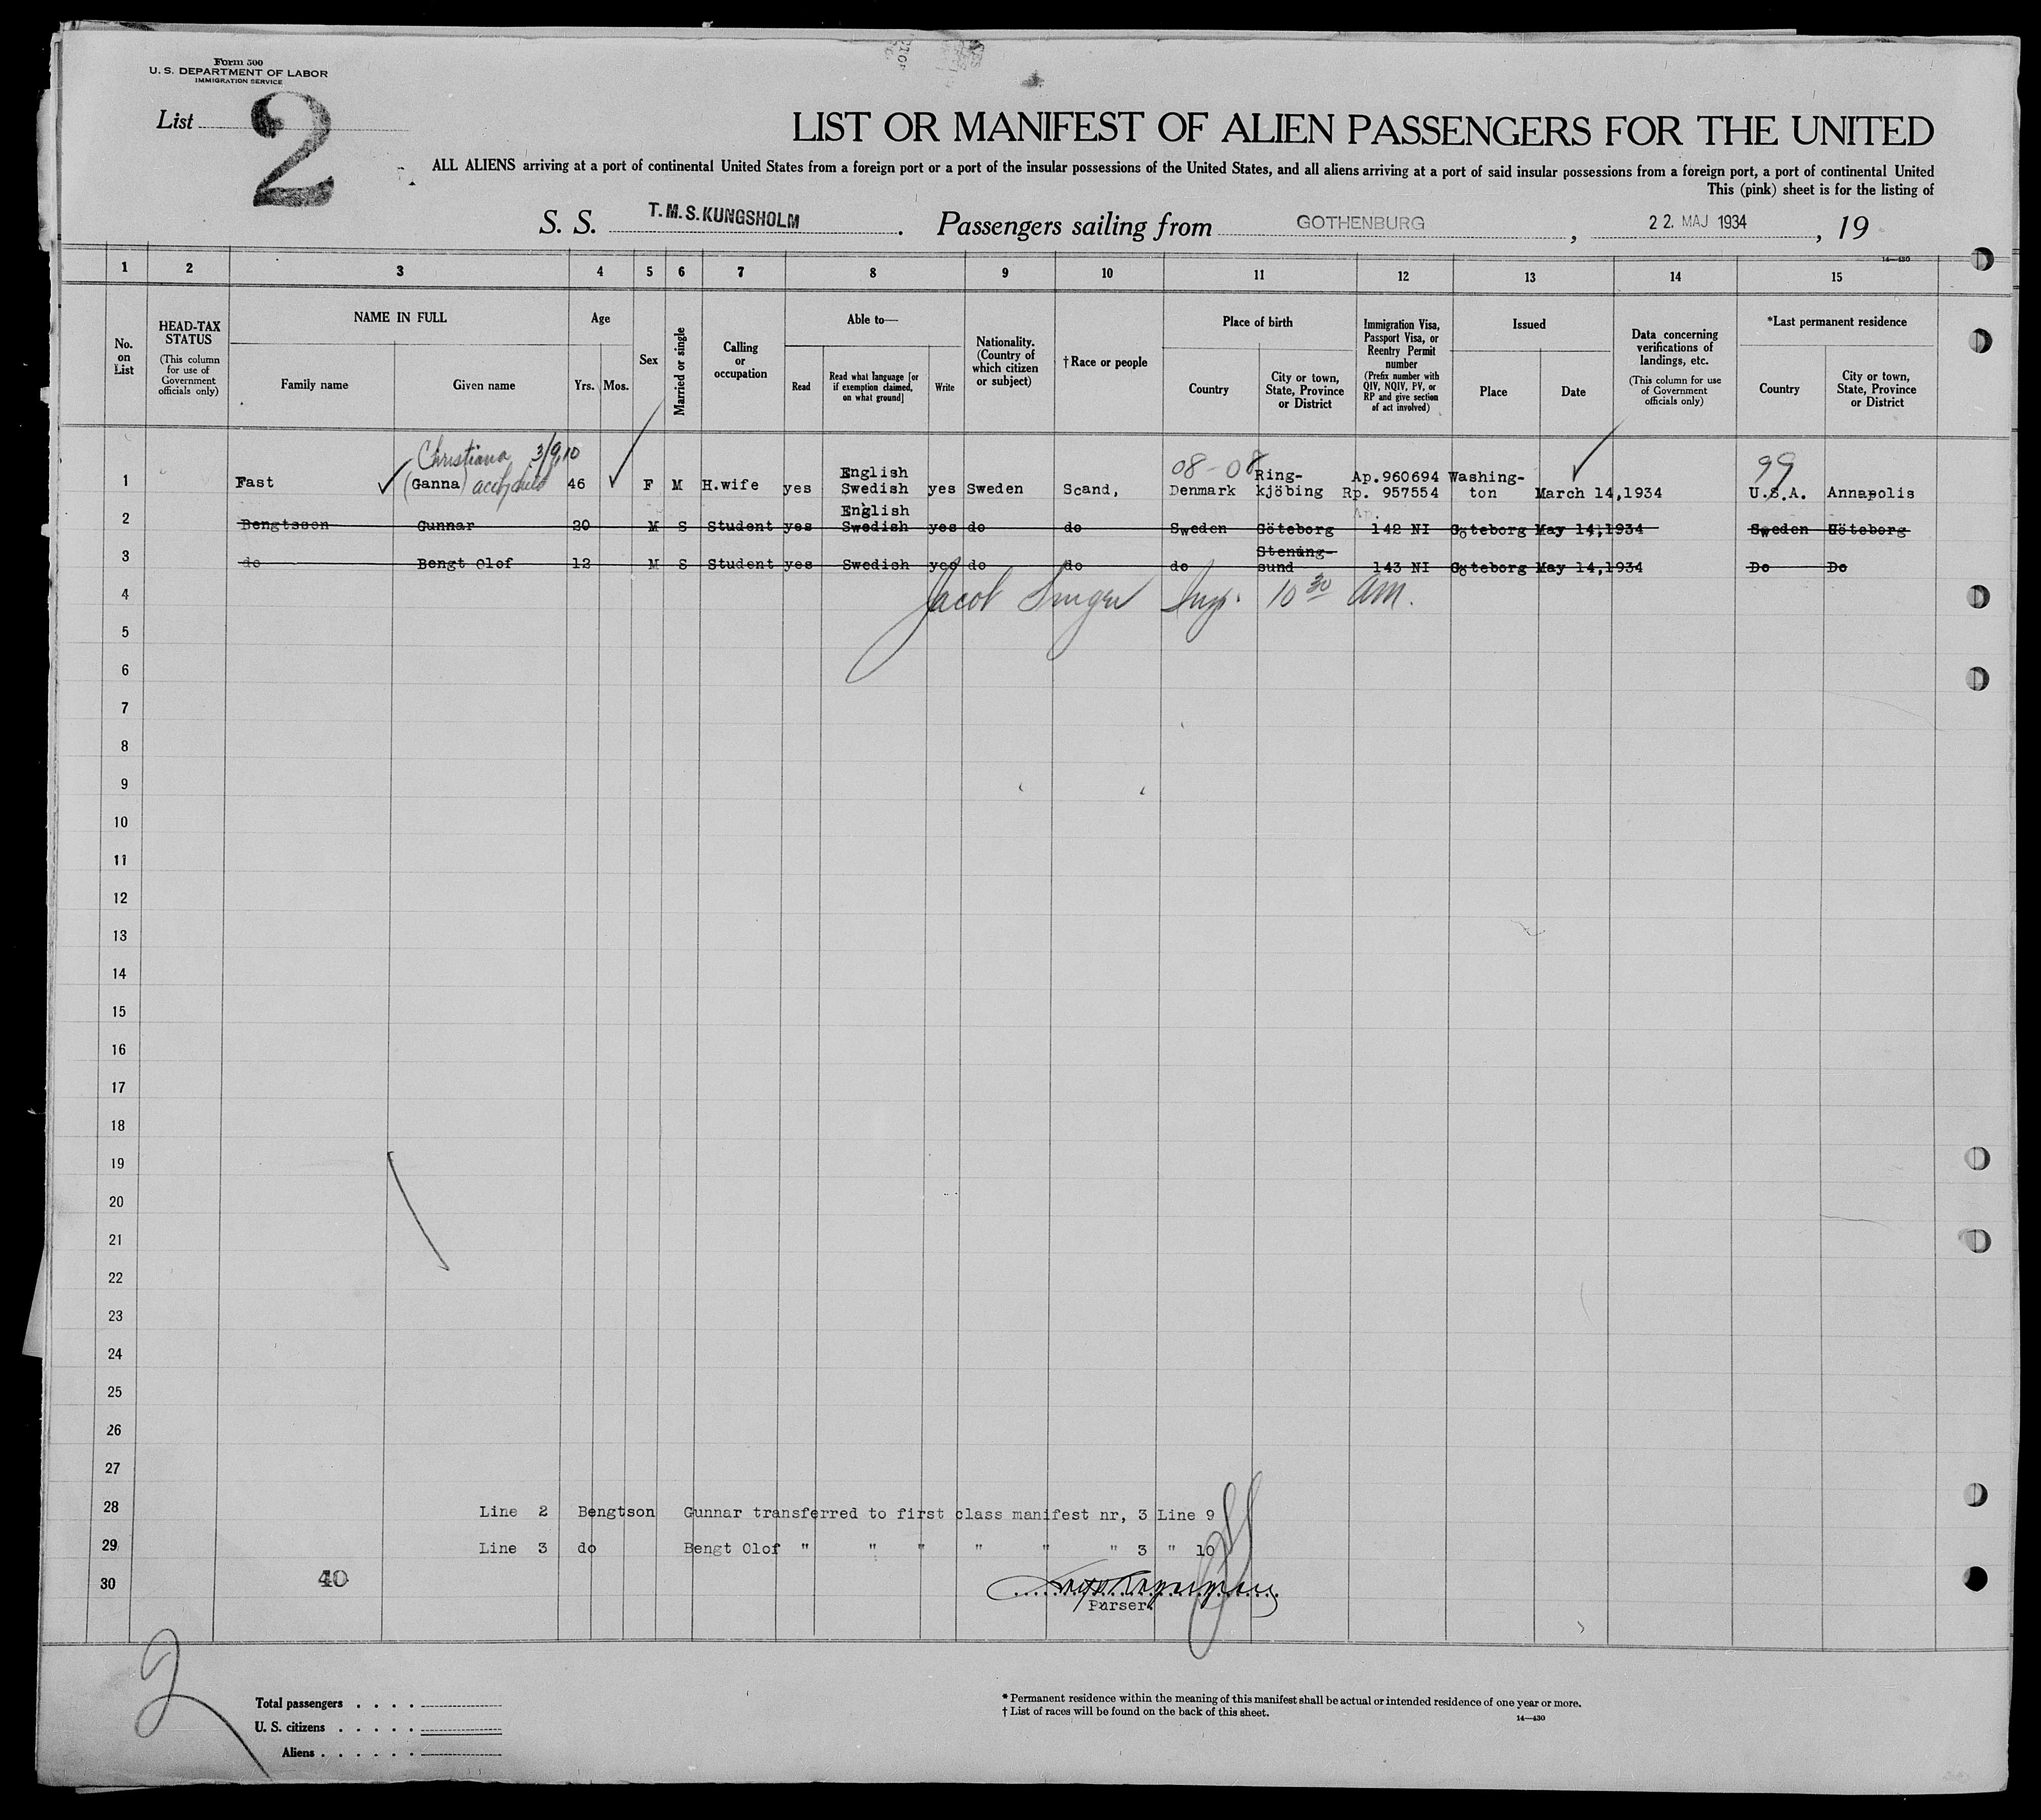 Form 500
U. S. DEPARTMENT OF LABOR
IMMIGRATION SERVICE
List 2
LIST OR MANIFEST OF ALIEN PASSENGERS FOR THE UNITED
ALL ALIENS arriving at a port of continental United States from a foreign port or a port of the insular possessions of the United States, and all aliens arriving at a port of said insular possessions from a foreign port, a port of continental United
This (pink) sheet is for the listing of
S. S. T.M.S.KUNGSHOLM. Passengers sailing from GOTHENBURG, 22. MAJ 1934, 19
14—430
1 2 3 4 5 6 7 8 9 10 11 12 13 14 15
No. on List
HEAD-TAX STATUS
(This column for use of Government officials only)
NAME IN FULL
Family name
Given name
Age
Yrs. Mos.
Sex
Married or single
Calling or occupation
Able to—
Read
Read what language [or if exemption claimed, on what ground]
Write
Nationality. (Country of which citizen or subject)
†Race or people
Place of birth
Country
City or town, State, Province or District
Immigration Visa, Passport Visa, or Reentry Permit number
(Prefix number with QIV, NQIV, PV, or RP and give section of act involved)
Issued
Place
Date
Data concerning verifications of landings, etc.
(This column for use of Government officials only)
*Last permanent residence
Country
City or town, State, Province or District
Christiana 3/9,10
08-08 99
English Ring- Ap.960694 Washing-
1 Fast (Ganna) 46 F M H.wife yes Swedish yes Sweden Scand, Denmark kjöbing Rp. 957554 ton March 14,1934 U.S.A. Annapolis
English Ap.
2 Bengtsson Gunnar 20 M S Student yes Swedish yes do do Sweden Göteborg 142 NI Göteborg May 14,1934 Sweden Göteborg
Stenung-
3 do Bengt Olof 12 M S Student yes Swedish yes do do do sund 143 NI Göteborg May 14,1934 Do Do
4 Jacob Insp. 10 30 AM.
5
6
7
8
9
10
11
12
13
14
15
16
17
18
19
20
21
22
23
24
25
26
27
28 Line 2 Bengtson Gunnar transferred to first class manifest nr, 3 Line 9
29 Line 3 do Bengt Olof " " " " " " 3 " 10
30 40
Purser.
2
Total passengers . . . .
U. S. citizens . . . . .
Aliens . . . . . .
* Permanent residence within the meaning of this manifest shall be actual or intended residence of one year or more.
† List of races will be found on the back of this sheet.
14—430